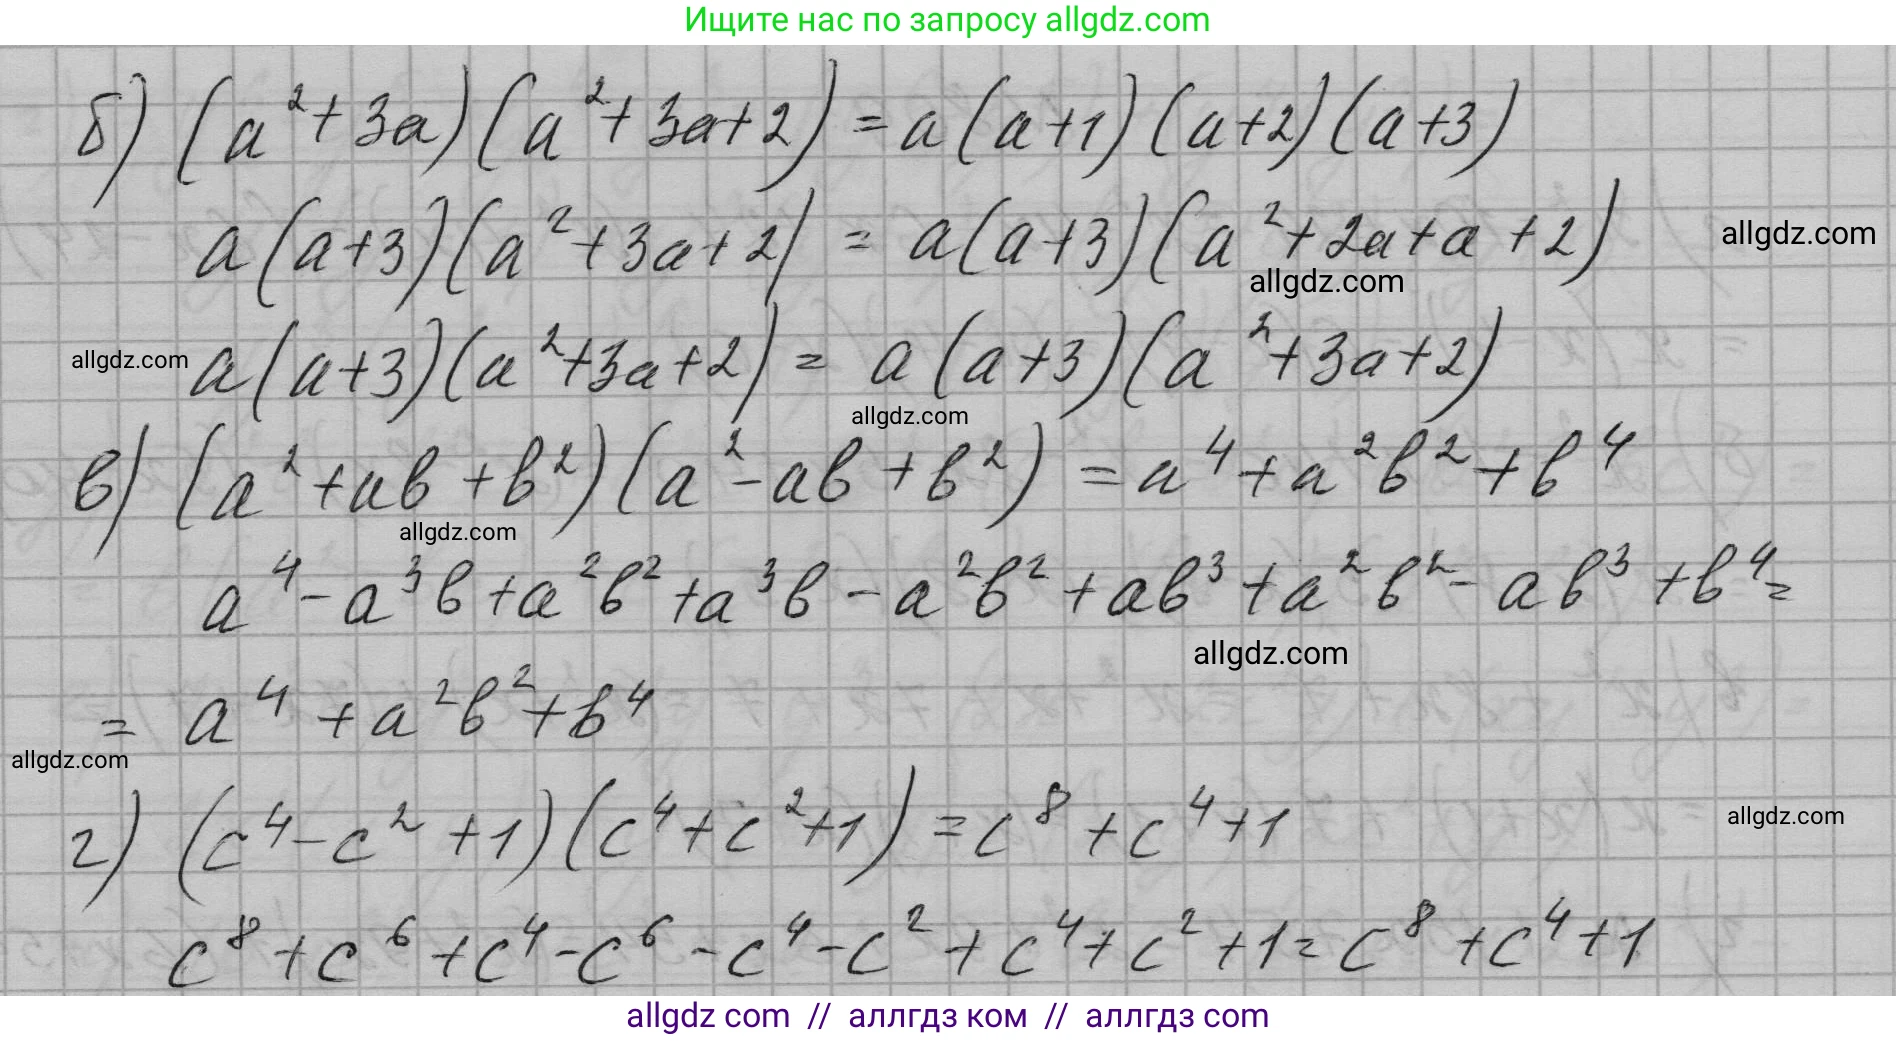 Ищите нас по запросу allgdz.com
б) (a²+3a)(a²+3a+2)=a(a+1)(a+2)(a+3)
a(a+3)(a²+3a+2)=a(a+3)(a²+2a+a+2)
allgdz.com
allgdz.com
allgdz.com a(a+3)(a²+3a+2)=a(a+3)(a²+3a+2)
allgdz.com
в) (a²+ab+b²)(a²-ab+b²)=a⁴+a²b²+b⁴
allgdz.com
a⁴-a³b+a²b²+a³b-a²b²+ab³+a²b²-ab³+b⁴=
allgdz.com
=a⁴+a²b²+b⁴
allgdz.com
г) (c⁴-c²+1)(c⁴+c²+1)=c⁸+c⁴+1
allgdz.com
c⁸+c⁶+c⁴-c⁶-c⁴-c²+c⁴+c²+1=c⁸+c⁴+1
allgdz com // аллгдз ком // аллгдз com